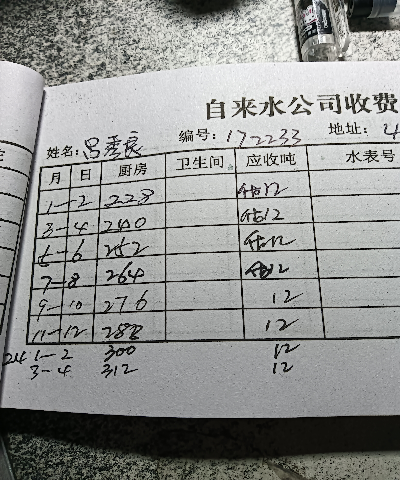 自来水公司收费
姓名: 吕秀良 编号: 172233 地址: 4
月 日 厨房 卫生间 应收吨 水表号
1-2 228 估12
3-4 240 估12
5-6 252 估12
7-8 264 估12
9-10 276 12
11-12 288 12
24 1-2 300 12
3-4 312 12